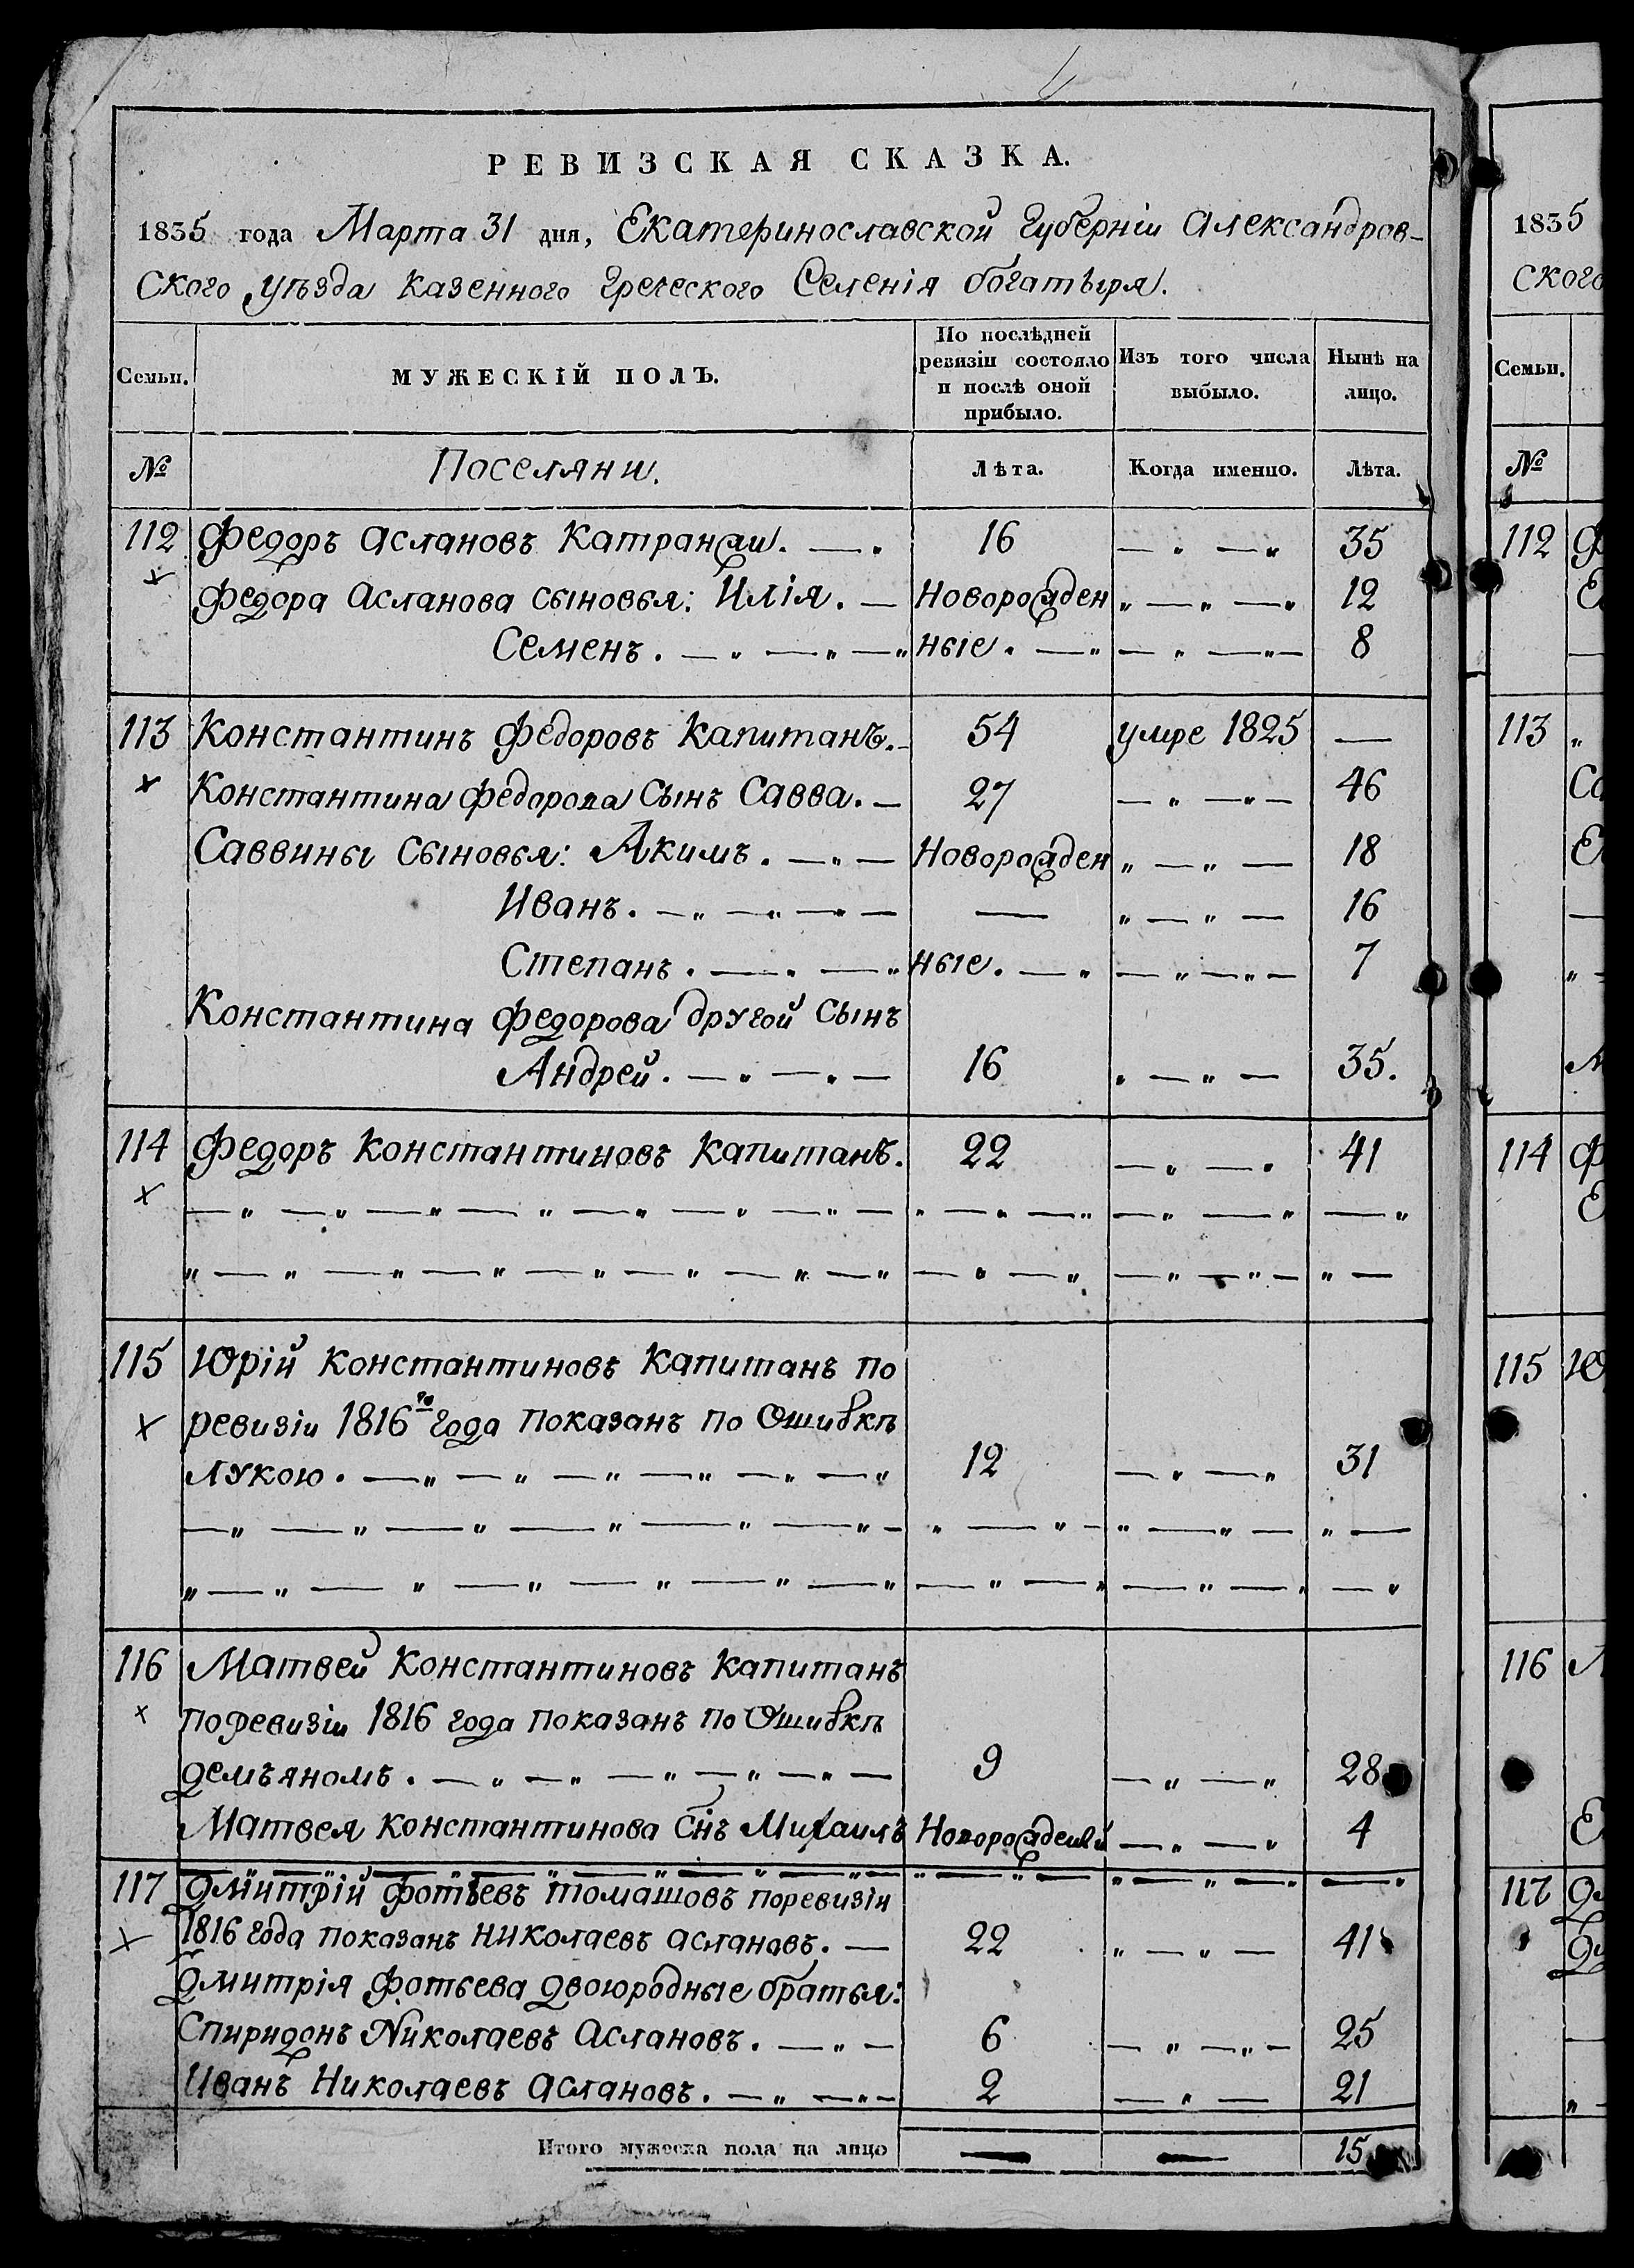 РЕВИЗСКАЯ СКАЗКА.
1835 года Марта 31 дня, Екатеринославской Губерніи Александров-
ского уѣзда казенного Греческого Селенія богатыря.
Семьи.
МУЖЕСКІЙ ПОЛЪ.
По послѣдней ревизіи состояло и послѣ оной прибыло.
Изъ того числа выбыло.
Нынѣ на лицо.
№ Поселяни. Лѣта. Когда именно. Лѣта.
112 Федоръ Аслановъ Катранжи. — 16 — „ — „ 35
Федора Асланова сыновья: Илія. — Новорожден „ — „ — „ 12
Семенъ. — „ — „ — „ ные. — „ — „ — „ — 8
113 Константинъ Федоровъ Капитанъ. 54 умре 1825 —
Константина Федорова Сынъ Савва. — 27 — „ — „ — 46
Саввины Сыновья: Акимъ. — „ — Новорожден „ — „ — 18
Иванъ. — „ — „ — „ — — „ — „ — 16
Степанъ. — „ — „ ные. — „ — „ — „ — 7
Константина Федорова другой Сынъ
Андрей. — „ — „ — 16 „ — „ — 35.
114 Федоръ Константиновъ Капитанъ. 22 — „ — „ 41
115 Юрій Константиновъ Капитанъ по
ревизіи 1816го года показанъ по Ошибкѣ
Лукою. — „ — „ — „ — „ — „ — „ 12 — „ — „ 31
116 Матвей Константиновъ Капитанъ
по ревизіи 1816 года показанъ по Ошибкѣ
демъяномъ. — „ — „ — „ — „ — „ — 9 — „ — „ 28
Матвея Константинова Снъ Михаилъ Новорожденый — „ — „ 4
117 Дмитрій Фотьевъ Томашовъ по ревизіи
1816 года показанъ Николаевъ Аслановъ. — 22 „ — „ — 41
Дмитрія Фотьева двоюродные братья:
Спиридонъ Николаевъ Аслановъ. — „ — 6 — „ — „ — 25
Иванъ Николаевъ Аслановъ. — „ — „ — 2 — „ — 21
Итого мужеска пола на лицо — — 15
1835
ского
Семьи.
№
112 Ф
113
114 Ф
115 Ю
116
117